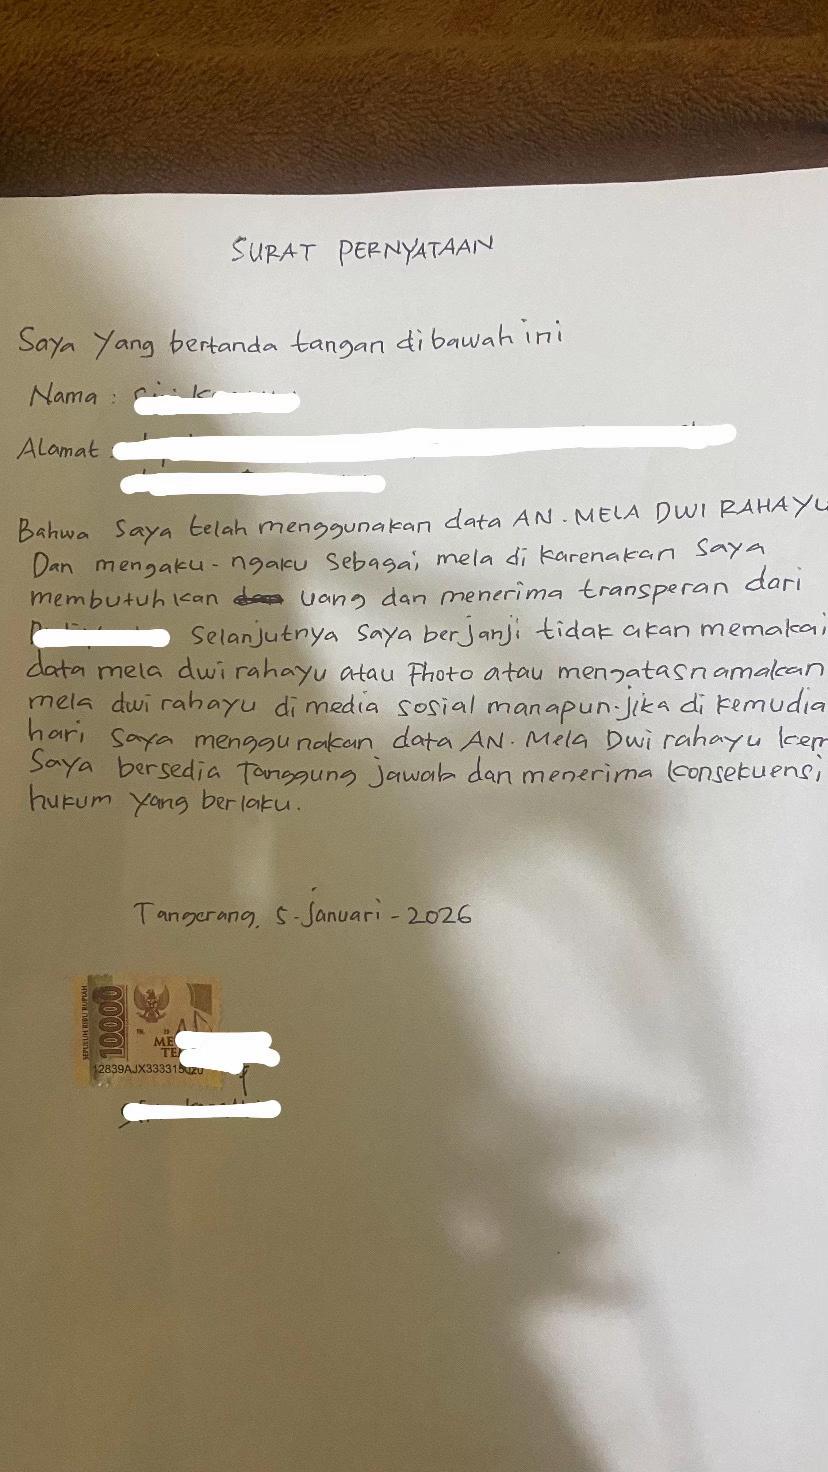 SURAT PERNYATAAN
Saya Yang bertanda tangan dibawah ini
Nama :
Alamat
Bahwa saya telah menggunakan data AN. MELA DWI RAHAYU
Dan mengaku-ngaku sebagai mela di karenakan saya
membutuhkan uang dan menerima transperan dari
Selanjutnya saya berjanji tidak akan memakai
data mela dwi rahayu atau Photo atau mengatasnamakan
mela dwi rahayu di media sosial manapun. jika di kemudia
hari saya menggunakan data AN. Mela Dwi rahayu kem
Saya bersedia Tanggung jawab dan menerima konsekuensi
hukum yang berlaku.
Tangerang, 5-januari-2026
SEPULUH RIBU RUPIAH
10000
ME
TE